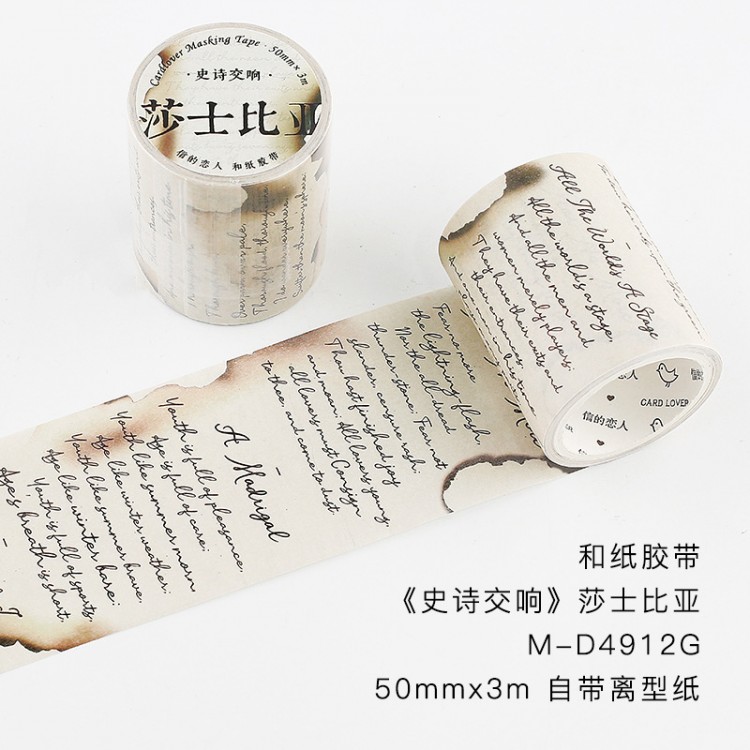 Cardlover Masking Tape · 50mm×3m
·史诗交响·
莎士比亚
信的恋人 和纸胶带
All The World's A Stage
All the world's a stage,
And all the men and
women merely players;
They have their exits and
their entrances,
Fear no more
the lightning flash,
Nor the all-dread
thunder stone; Fear not
slander, censure rash;
Thou hast finished joy
and moan; All lovers young,
all lovers must Consign
to thee, and come to dust.
A Madrigal
Youth is full of pleasance,
Age is full of care;
Youth like summer morn
Age like winter weather;
Youth like summer brave,
Age like winter bare:
Youth is full of sports,
Age's breath is short,
信的恋人
CARD LOVER
和纸胶带
《史诗交响》莎士比亚
M-D4912G
50mmx3m 自带离型纸